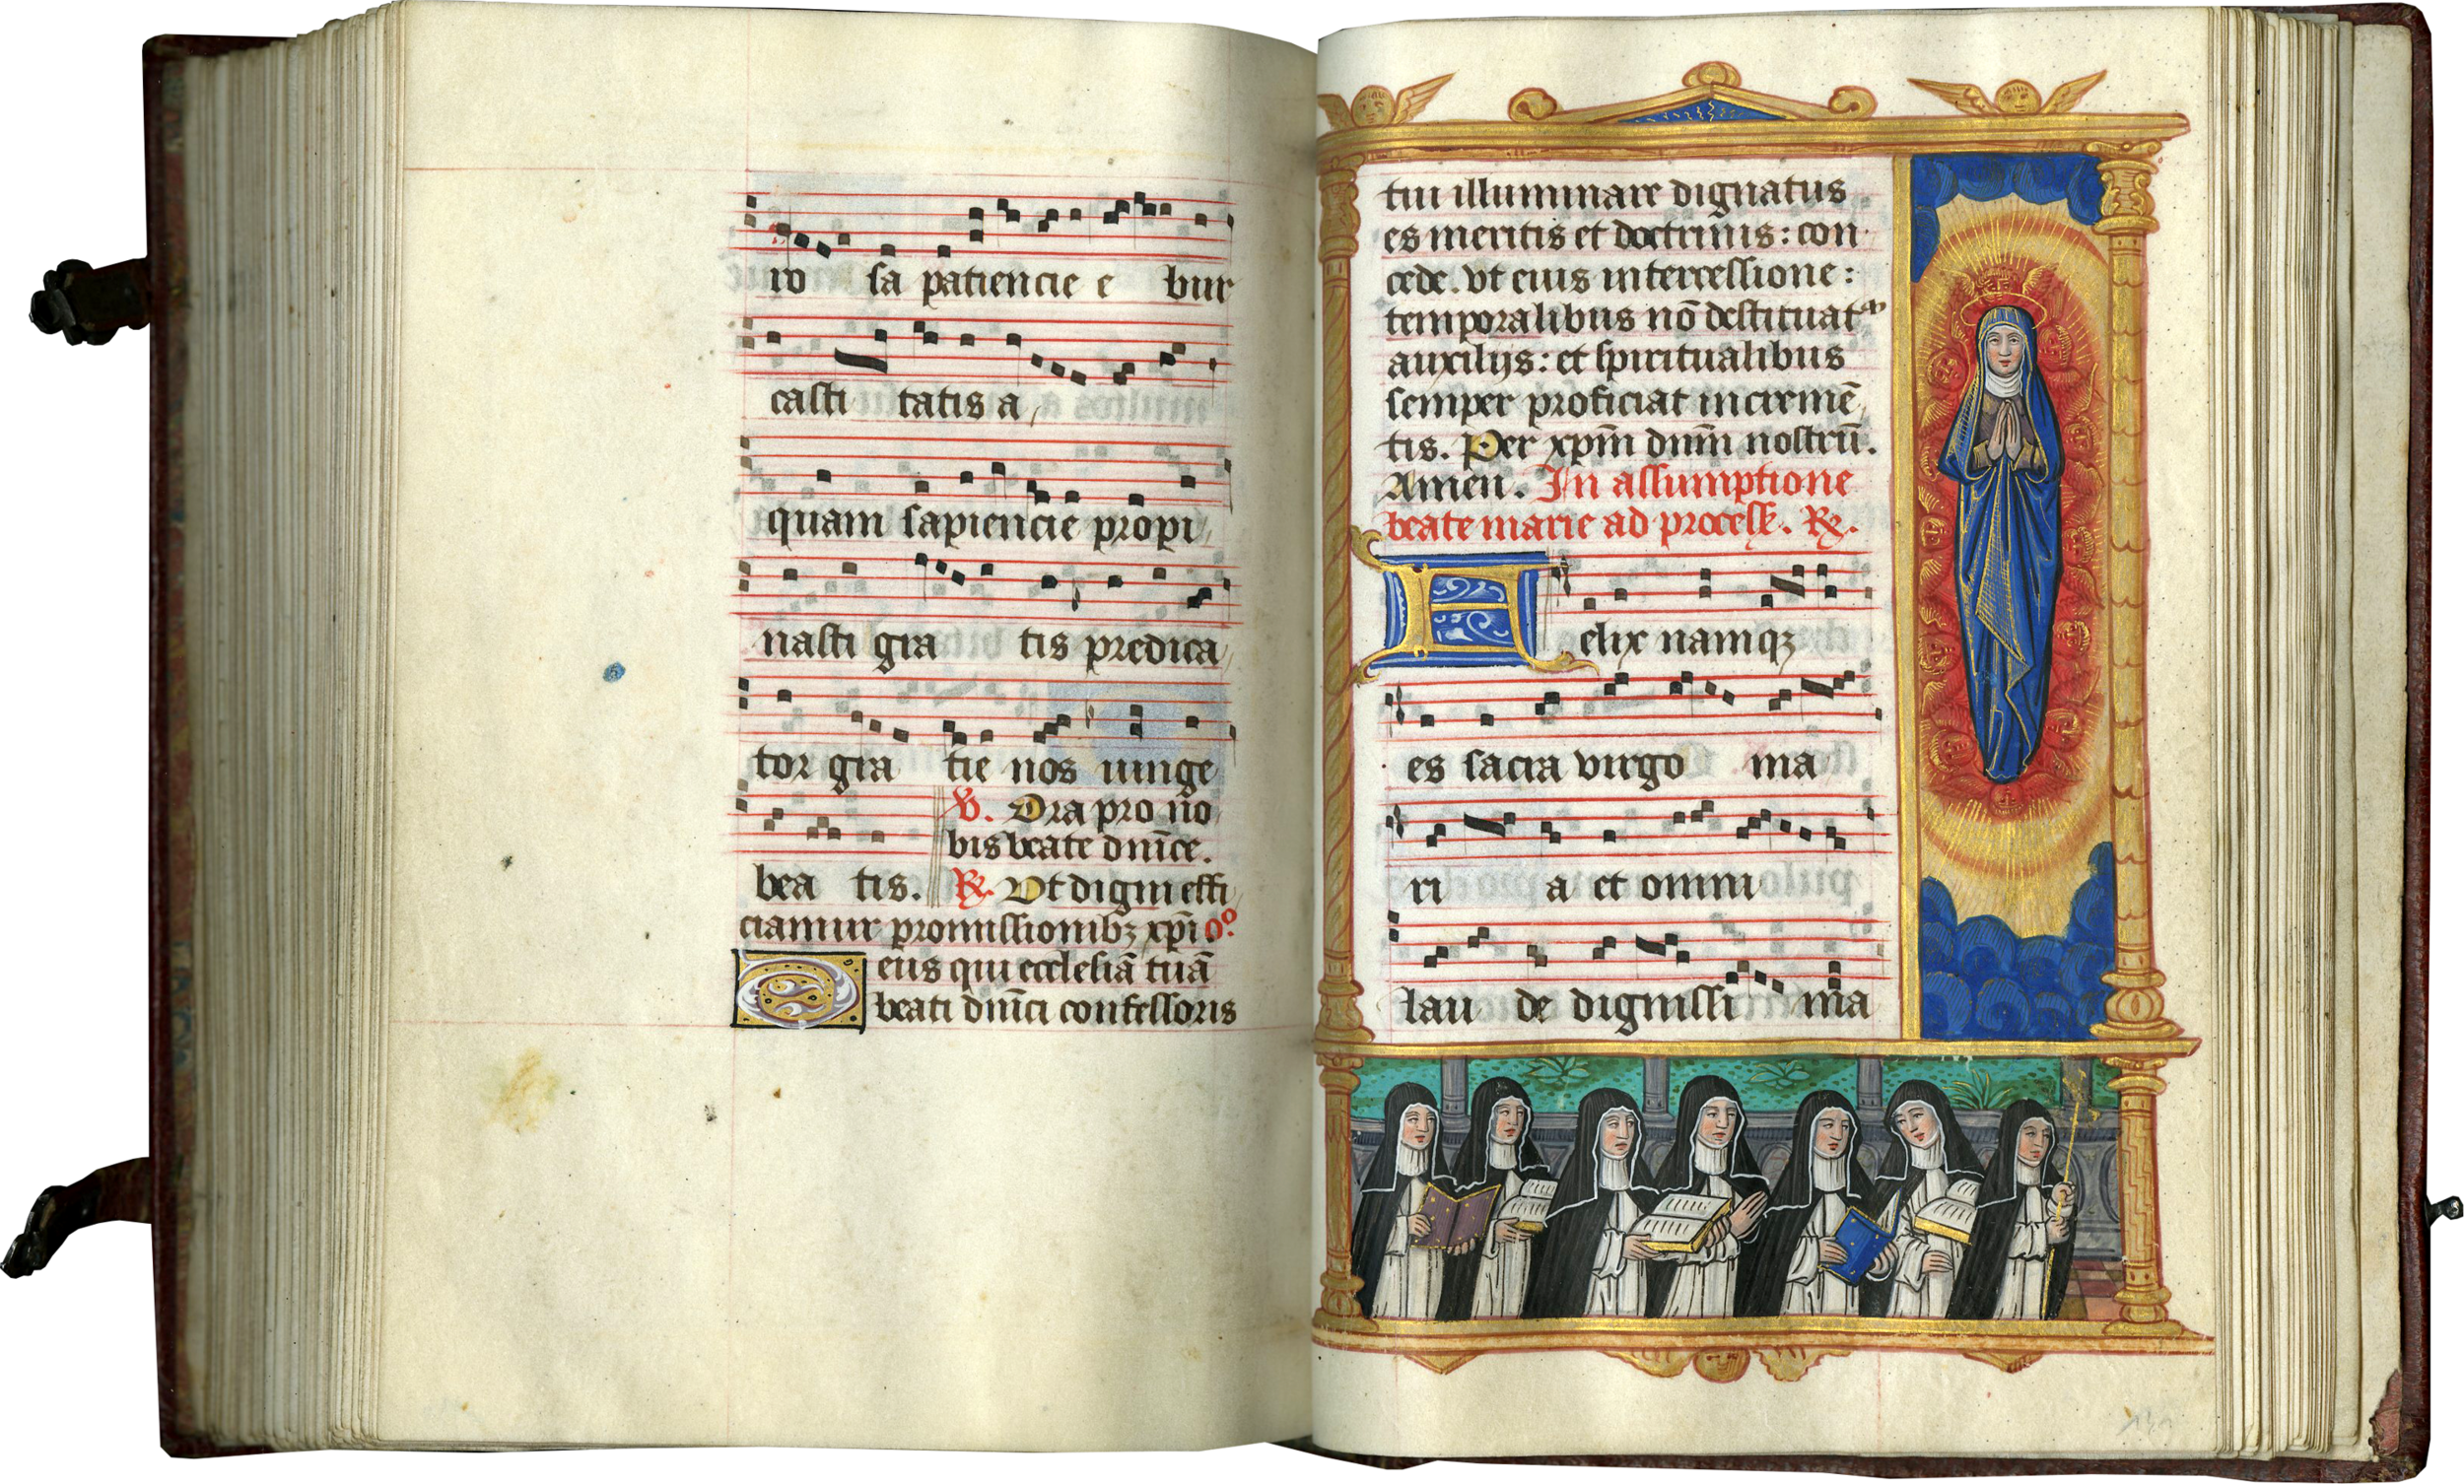 ro sa patiencie e bur
casti tatis a
quam sapiencie propi
nasti gra tis predica
tor gra tie nos iunge
℣. Ora pro no
bis beate dn̄ice.
bea tis. ℟. Vt digni effi
ciamur promissionibꝫ xp̄i. Oº.
Deus qui ecclesiā tuā
beati dn̄ici confessoris
tui illuminare dignatus
es meritis et doctrinis: con
cede. vt eius intercessione:
temporalibus nō destituat᷑
auxilijs: et spiritualibus
semper proficiat incremē
tis. Per xpm̄ dnm̄ nostrū.
Amen. In assumptione
beate marie ad process. ℟.
Felix namqꝫ
es sacra virgo ma
ri a et omni
lau de dignissi ma